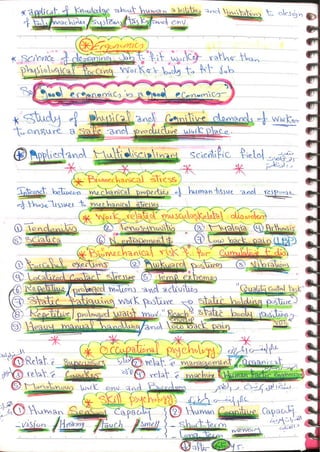 * applicat. of knowledge about human abilities and limitations to design
of tools/machines/system/tasks and env.
* Ergonomics
* Science of designing Job to fit worker rather than
physiological forcing worker body to fit Job
good ergonomics is a good economics
* Study of physical and cognitive demands of worker
to ensure a safe and productive workplace.
* Applied and Multidisciplinary scientific field.
* Biomechanical stress
Interact. between mechanical properties of human tissue and response
of these tissues to mechanical stress
* Work related musculoskeletal disorders
① Tendenitis ② Tenosynovitis ③ Myalgia ④ Arthrosis
⑤ Sciatica ⑥ N. entrapements ⑦ Low back pain (LBP)
* Biomechanical risk F. for
① Forceful exertions ② Awkward postures ③ Vibration
④ Localized contact stresses ⑤ Temp extreme
⑥ Repetitive/prolonged motions and activities
⑦ Static fatiguing work posture → Static holding posture
⑧ Repetitive prolonged waist mov. Static body position
⑨ Heavy manual handling and Low back pain
* Occupational psychology
① Relat. ē Supervisors ② relat. ē management
③ Relat. ē ④ relat. ē machine
⑤ Monotonous work env. and Boredom
* Skill psychology
① Human Sensory Capacity ② Human Cognitive Capacity
- vision / Hearing / Touch / smell - Short term
memory